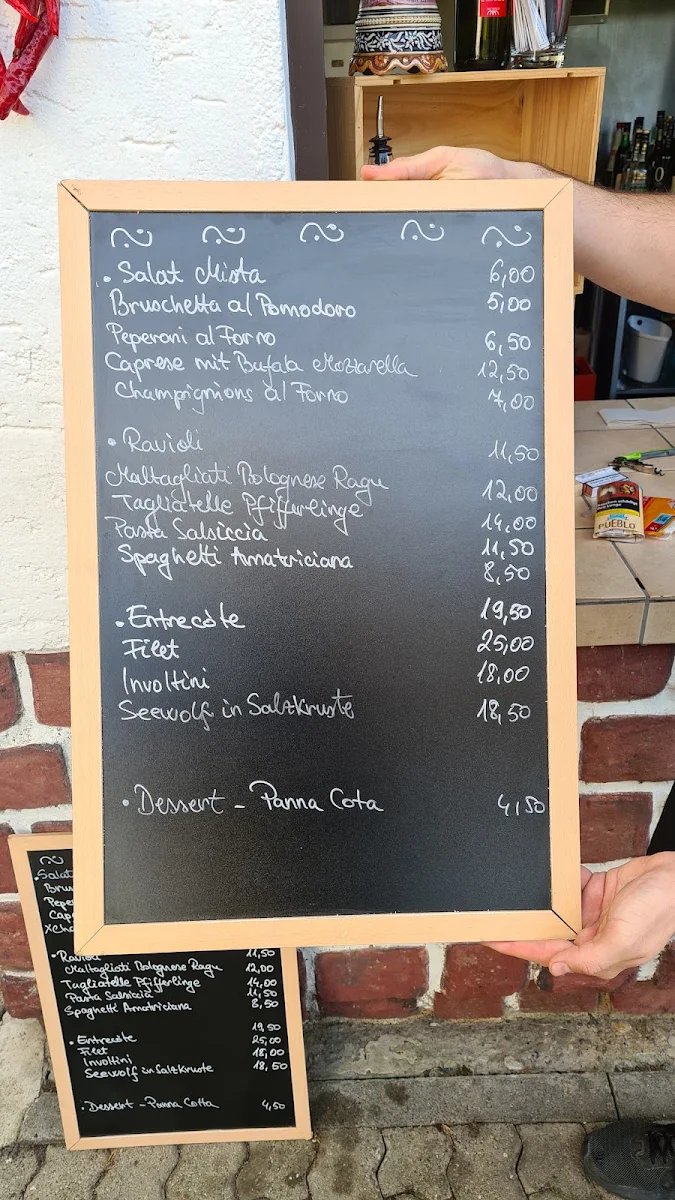 . Salat Mista 6,00
Bruschetta al Pomodoro 5,00
Peperoni al Forno 6,50
Caprese mit Bufala Mozzarella 12,50
Champignions al Forno 7,00
. Ravioli 11,50
Maltagliati Bolognese Ragu 12,00
Tagliatelle Pfifferlinge 14,00
Pasta Salsiccia 11,50
Spaghetti Amatriciana 8,50
. Entrecôte 19,50
Filet 25,00
Involtini 18,00
Seewolf in Salzkruste 18,50
. Dessert - Panna Cota 4,50
PUEBLO
. Salat
Brus
Pepe
Cap
XCha
. Ravioli 11,50
Maltagliati Bolognese Ragu 12,00
Tagliatelle Pfifferlinge 14,00
Pasta Salsiccia 11,50
Spaghetti Amatriciana 8,50
. Entrecôte 19,50
Filet 25,00
Involtini 18,00
Seewolf in Salzkruste 18,50
. Dessert - Panna Cotta 4,50